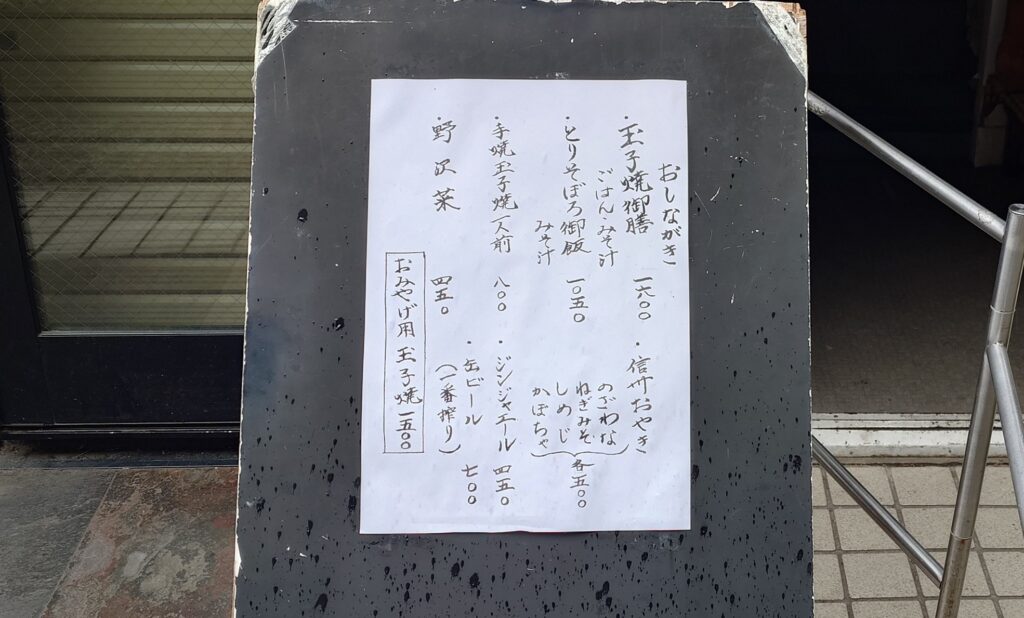 おしながき
・玉子焼御膳 一六〇〇
ごはん・みそ汁
・とりそぼろ御飯 一〇五〇
みそ汁
・手焼玉子焼一人前 八〇〇
・野沢菜 四五〇
・信州おやき
のざわな
ねぎみそ
しめじ
かぼちゃ
各五〇〇
・ジンジャエール 四五〇
・缶ビール 七〇〇
(一番搾り)
おみやげ用 玉子焼 一五〇〇